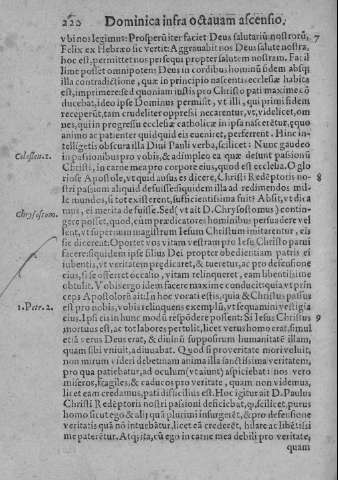 220 Dominica infra octauam ascensio.
vbi nos legimus: Prosperũ iter faciet Deus salutariũ nostrorũ, 7
Felix ex Hebræo sic vertit: Aggrauabit nos Deus salute nostra,
hoc est, permittet nos persequi propter salutem nostram. Facilime posset omnipotens Deus in cordibus hominũ fidem absq;
illa contradictione, quæ in principio nascentis ecclesiæ habita
est, imprimere: sed quoniam iustis pro Christo pati maxime cõducebat, ideo ipse Dominus permisit, vt illi, qui primi fidem
receperũt, tam crudeliter oppresi necarentur, vt, videlicet, omnes, qui in progressu ecclesiæ catholicæ in ipsa nascerẽtur, equo
animo ac patienter quidquid eis eueniret, perferrent. Hinc intelligetis obscura illa Diui Pauli verba, scilicet: Nunc gaudeo
Colossen. 1. in passionibus pro vobis, & adimpleo ea quæ desunt passionũ
Christi, in carne mea pro corpore eius, quod est ecclesia. O gloriose Apostole, vt quid ausus es dicere, Christi Redẽptoris nostri passioni aliquid defuisse: siquidem illa ad redimendos mille mundos, si tot existerent, sufficientissima fuit? Absit, vt dicamus, ei merita defuisse. Sed (vt ait D. Chrysostomus) contingere posset, quod, cum prædicatores hominibus persuadere vellent, vt supremum magistrum Iesum Christum imitarentur, eis
sic dicerent: Oportet vos vitam vestram pro Iesu Christo parui
facere: siquidem ipse filius Dei propter obedientiam patris ei
iubentis, vt veritatem predicaret, & tueretur, ac pro defensione
eius, si se offerret occasio, vitam relinqueret, eam libentissime
obtulit. Vobis ergo idem facere maxime conducit: quia vt princeps Apostolorũ ait. In hoc vocati estis, quia & Christus passus
1. Petr. 2. est pro nobis, vobis relinquens exemplũ, vt sequamini vestigia
eius. Ipsi etiam hunc modũ respõdere possent: Si Iesus Christus 9
mortuus est, ac tot labores pertulit, licet verus homo erat, simul
etiã verus Deus erat, & diuinũ suppositum humanitatẽ illam,
quam sibi vniuit, adiuuabat. Quod si pro veritate mori voluit,
non mirum videri debet: nam anima illa sanctissima veritatem,
pro qua patiebatur, ad oculum (vt aiunt) aspiciebat: nos vero
miseros, fragiles, & caducos pro veritate, quam non videmus,
licet eam credamus, pati dificilius est. Hoc igitur ait D. Paulus
Christi Redẽptoris nostri passioni deficiebat, q̃, scilicet, purus
homo sicut ego & alij quã plurimi insurgerẽt, & pro defensione
veritatis quã nõ intuebãtur, licet eã crederẽt, hilare ac libẽtissime paterẽtur. Atq; ita, cũ ego in carne mea debili pro veritate,
quam
8
Chrysostom.